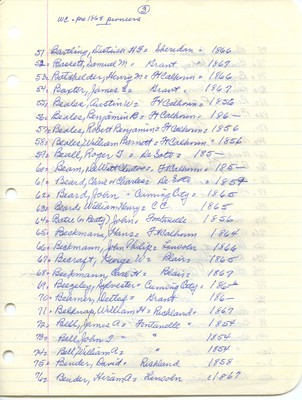 ③
WC - pre 1868 pioneers
51. Barthling, Dietrich H F = Sheridan = 1866
52. Bassett, Samuel M = Grant = 1867
53. Batshelder, Henry M = Ft Calhoun = 1866
54. Baxter, James E = Grant = 1867
55. Beales, Austin W = Ft Calhoun = 1856
56. Beales, Benjamin B = Ft Calhoun = 186–
57. Beales, Robert Benjamin = Ft Calhoun = 1856
58. Beales, William Bernott = Ft Calhoun = 1856
59. Beall, Roger T = De Soto = 185–
60. Beam, DeWitt Clinton = Ft Calhoun = 185–
61. Beard, Charles = De Soto =
62. Beard, John = Cuming City = 1865
63. Beard, William Henry = C C = 1865
64. Batie (or Batty) John = Fontanelle = 1856
65. Beckmann, Hans = Ft Calhoun = 1864
66. Beckmann, John Philip = Lincoln = 1866
67. Becraft, George W = Blair = 1865
68. Beekmann, = Blair = 1867
69. Beezley, Sylvester = Cuming City = 186–
70. Beerner, Detlef = Grant = 186–
71. Belknap, William H = Richland = 1867
72. Bell, James A = Fontanelle = 1854
73. Bell, John I = " 1854
74. Bell, William A = " 1854
75. Bender, David = Richland 1858
76. Bender, Hiram A = Lincoln c1867